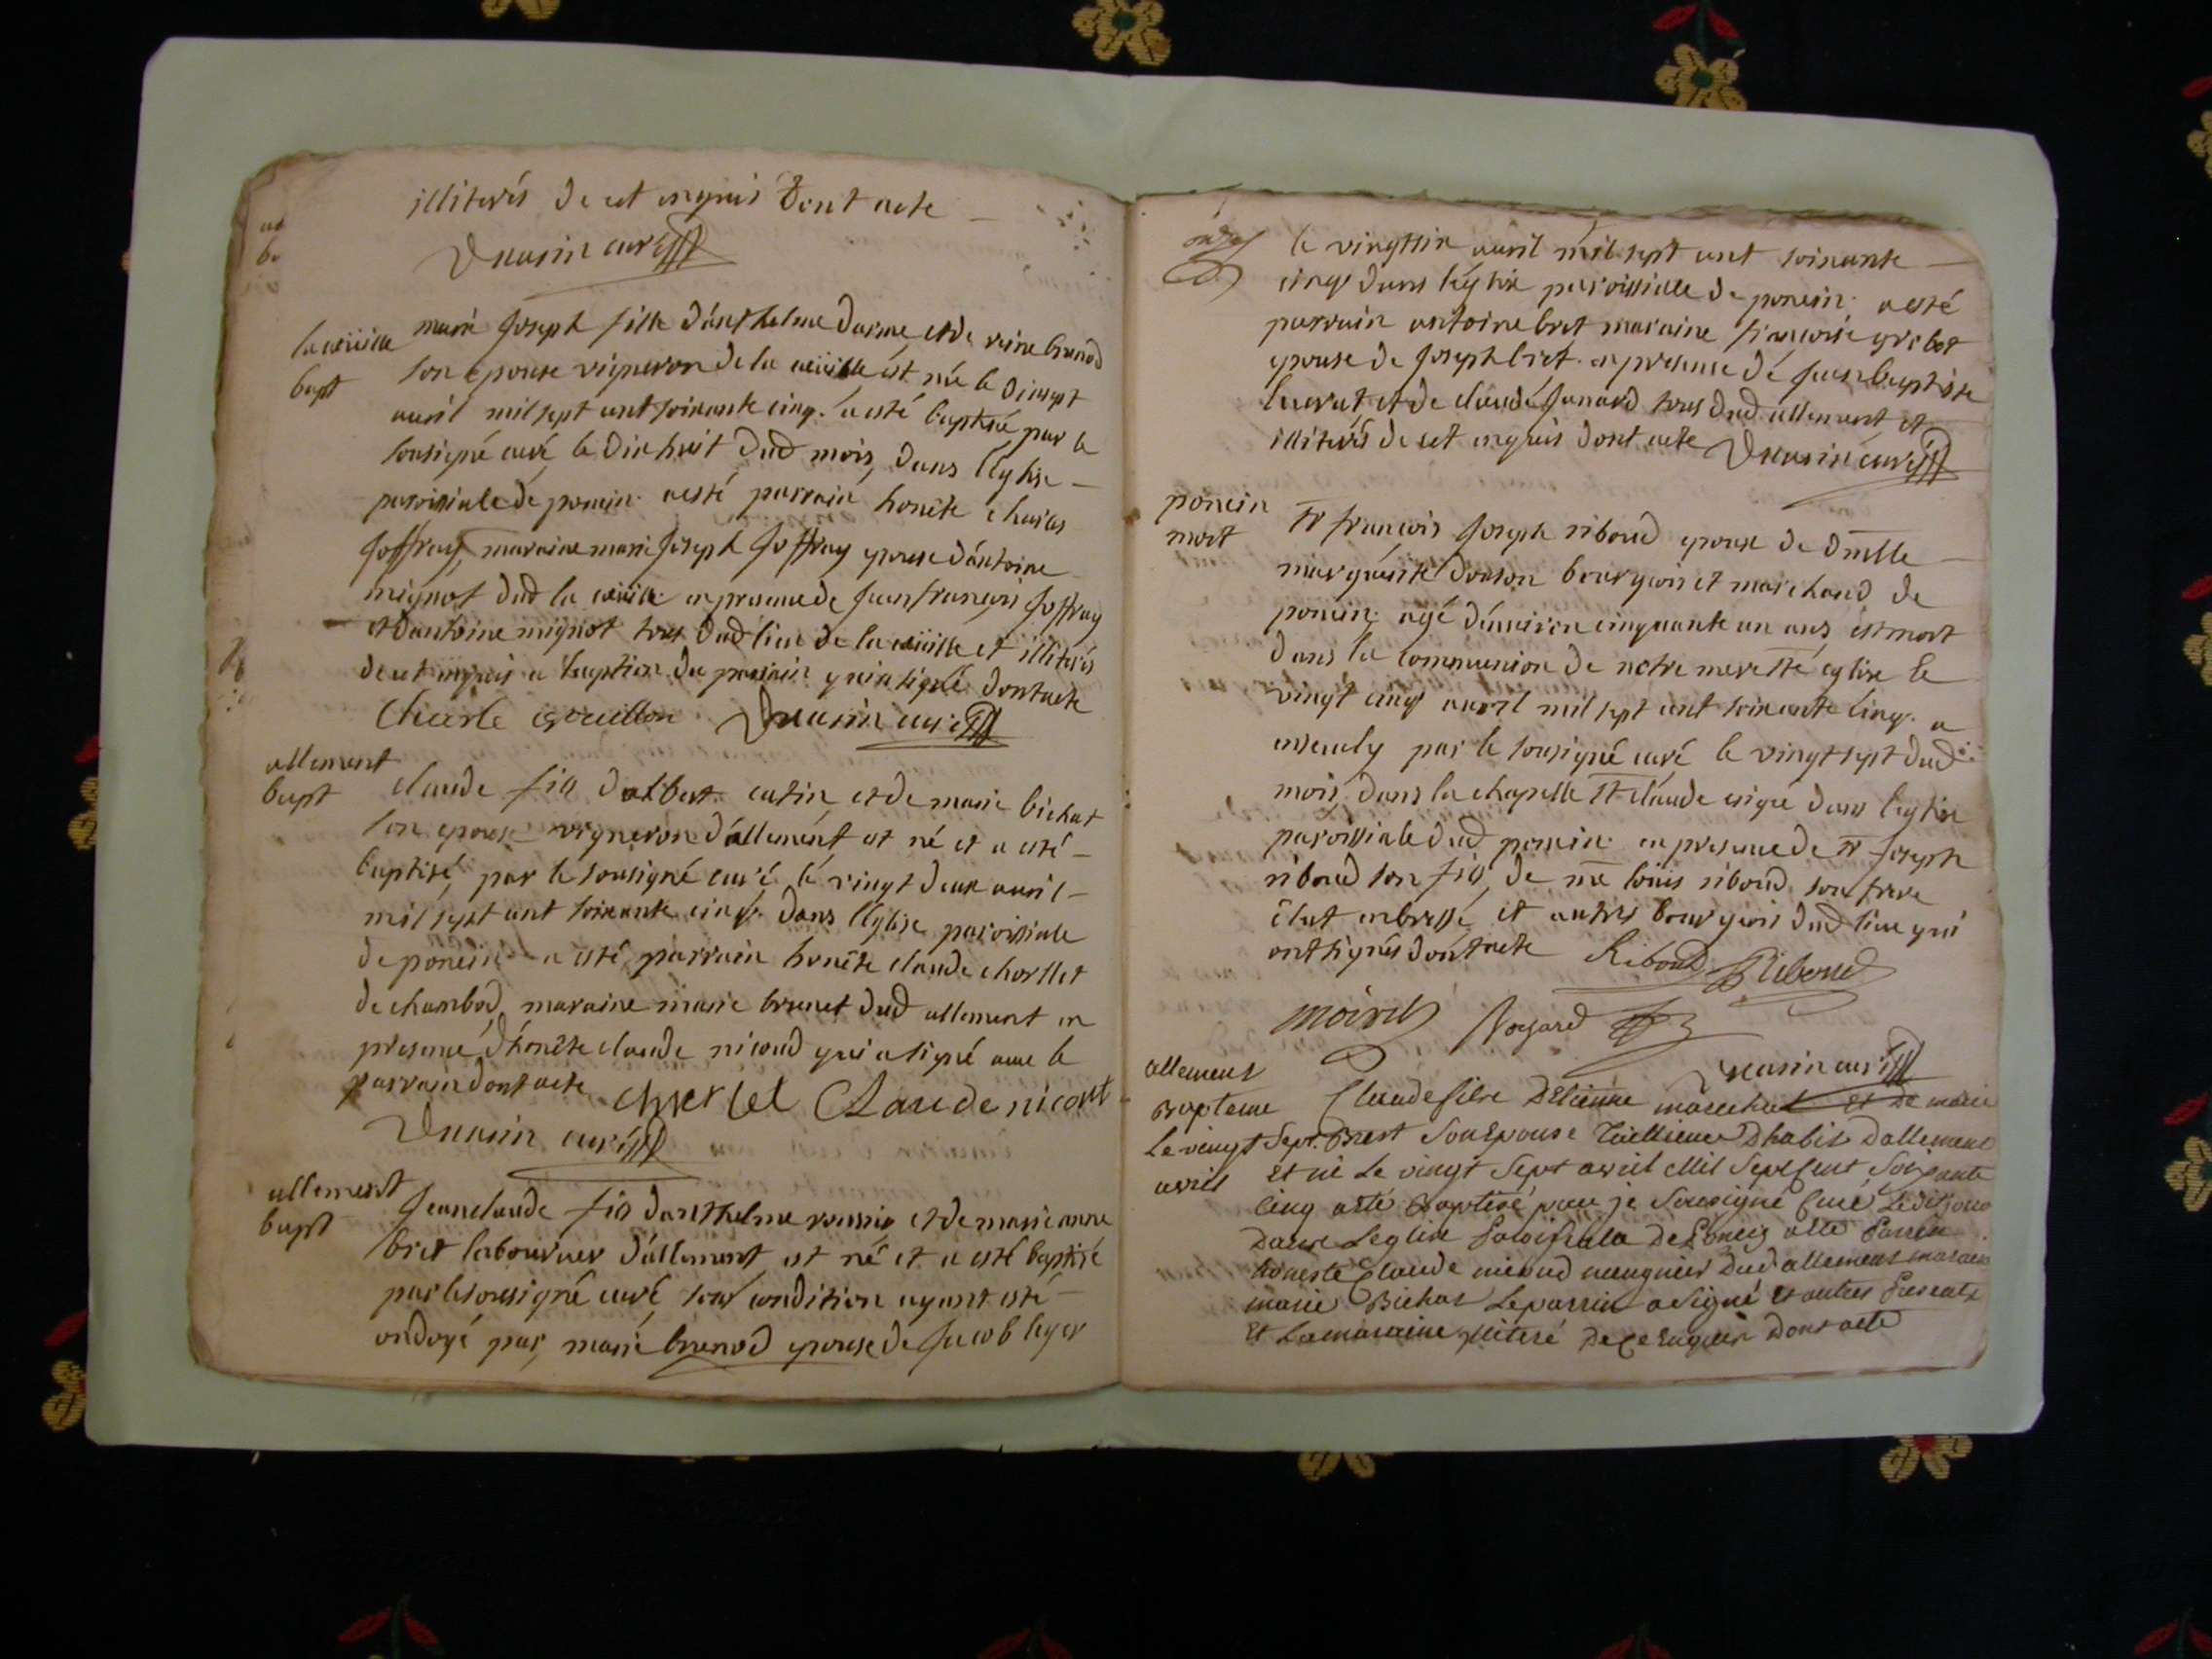 illiterés de cet enquis dont acte
curé
la cueuille
bapt
marie joseph fille d'anthelme darme et de reine brunod
son epouse vigneron de la cueuille est née le dixsept
avril mil sept cent soixante cinq. a esté baptisée par le
sousigné curé le dixhuit dud mois, dans l'eglise
paroissiale de poncin. a esté parrain honête charles
joffray, maraine marie joseph joffray epouse d'antoine
mignot dud la cueuille en presence de jean françois joffray
et d'antoine mignot tous dud lieu de la cueuille et illiterés
de cet enquis a l'exception du parrain qui a signé dont acte
Charle curé
allement
bapt
claude fils d'albert cutin et de marie bichat
son epouse vigneron d'allement est né et a esté
baptisé, par le sousigné curé le vingt deux avril
mil sept cent soixante cinq. dans l'eglise paroissiale
de poncin a esté parrain honête claude chorllet
de chambod, maraine marie brunet dud allement en
presence d'honête claude nicoud qui a signé avec le
parrain dont acte Claude nicout
curé
allement
bapt
jean claude fils d'anthelme et de marie anne
bret laboureur d'allement est né et a esté baptisé
par le sousigné curé sous condition ayant esté
ondoyé par, marie brunod epouse de jacob leger
le vingtsix avril mil sept cent soixante
cinq dans l'eglise paroissiale de poncin. a esté
parrain antoine bret maraine françoise grobot
epouse de joseph bret. en presence de jean baptiste
et de claude janard tous dud allement et
illiterés de cet enquis dont acte curé
poncin
mort
Sr françois joseph riboud epoux de dmlle
marguerite dorson bourgeois et marchand de
poncin, agé d'environ cinquante un ans, est mort
dans la communion de notre mere Ste eglise le
vingt cinq avril mil sept cent soixante cinq. a
enseuly par le sousigné curé le vingtsept dud
mois, dans la chapelle St claude erigé dans l'eglise
paroissiale dud poncin. en presence de Sr joseph
riboud son fils, de me louis riboud son frere
et autres bourgeois dud lieu qui
ont signés dont acte Riboud Riboud
curé
allement
Bapteme
Le vingt Sept
avril
Claude filse D'Etienne marechal et De marie
Bret Son Epouse Dhabit D'allement
Et né Le vingt Sept avril Mil Sept Cent Soixante
Cinq a été Baptisé par je Sousigné Curé Ledit jour
Dans L'eglise Paroissiale De Poncin a été Parrin
honeste Claude nicoud Dud allement maraine
marie Bichat Le parrin a signé et autres Presents
Et La maraine De Ce Enquis Dont acte